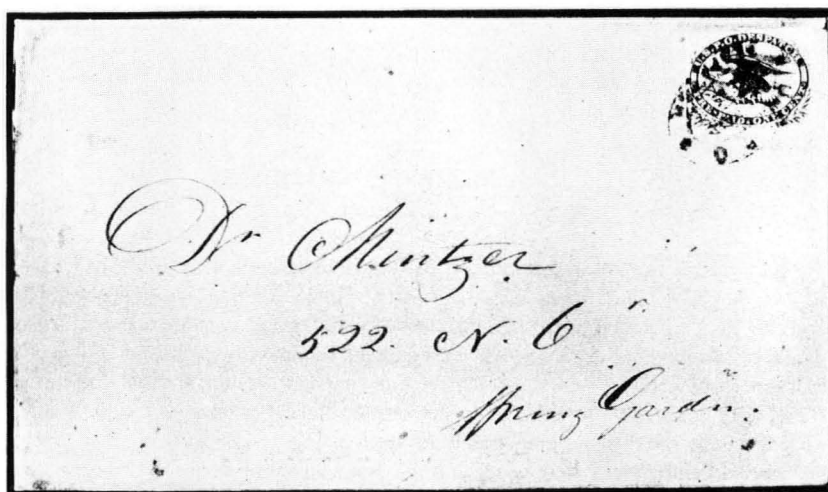 U.S.P.O. DESPATCH
PRE-PAID ONE CENT
Dr Mintzer
522. N. 6r
Spring Gardn.